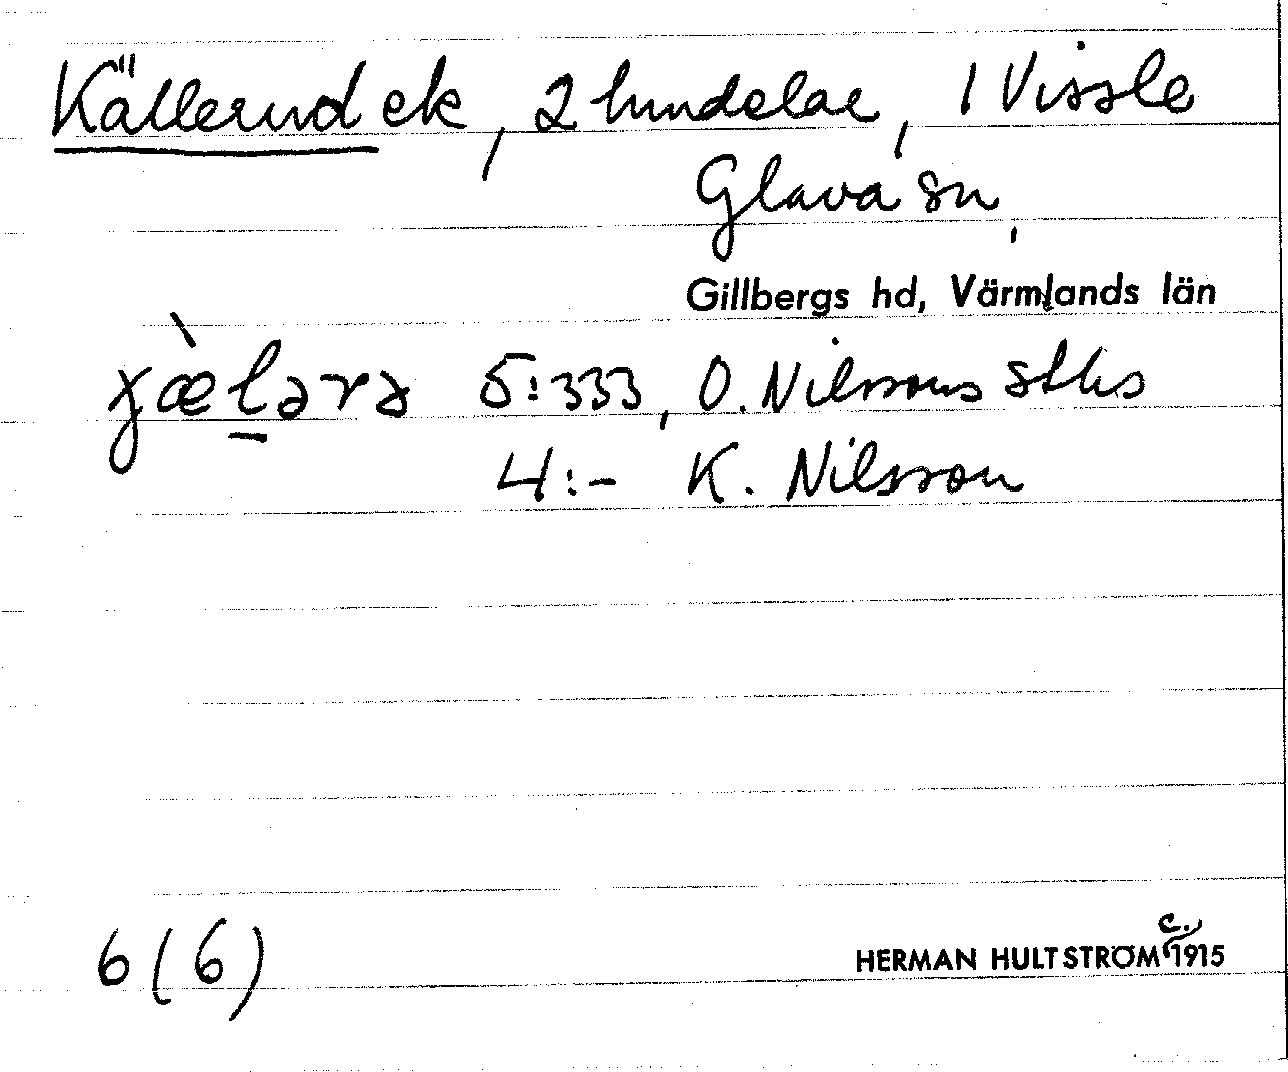 Källerud ek, 2 hundelar, 1 Vissle
Glava sn,
Gillbergs hd, Värmlands län
5:333, O. Nilssons stlis
4:- K. Nilsson
6 (6)
HERMAN HULTSTRÖM c. 1915